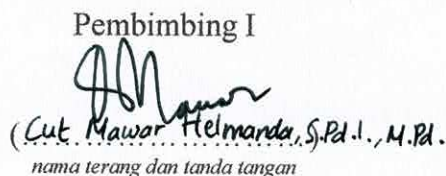 Pembimbing I
(Cut Mawar Helmanda, S.Pd.I., M.Pd.
nama terang dan tanda tangan